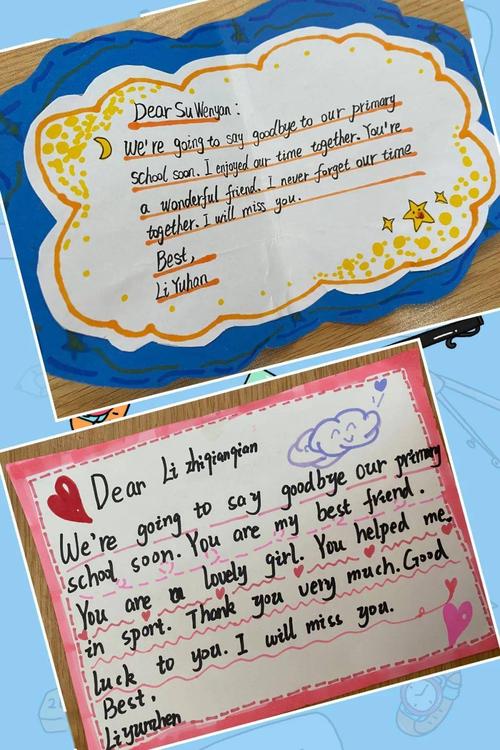 Dear Su Wenyan:
We're going to say goodbye to our primary
school soon. I enjoyed our time together. You're
a wonderful friend. I never forget our time
together. I will miss you.
Best,
Li Yuhan
Dear Li zhiqianqian
We're going to say goodbye our primary
school soon. You are my best friend.
You are a lovely girl. You helped me
in sport. Thank you very much. Good
luck to you. I will miss you.
Best,
Li yunzhen